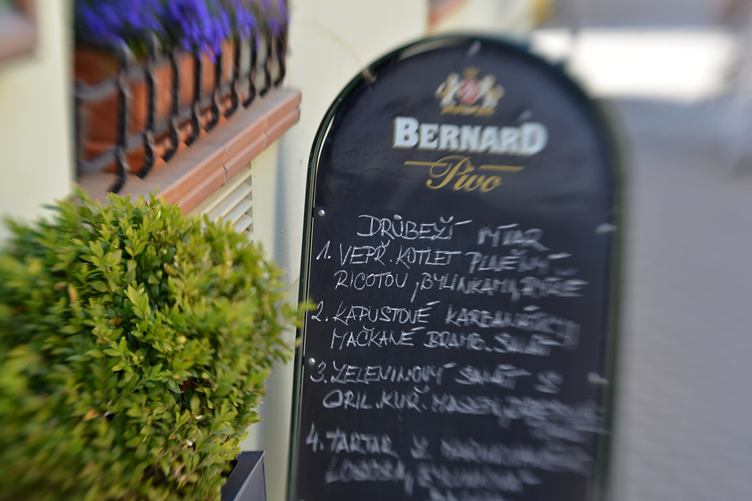 BERNARD
Pivo
DRŮBEŽÍ VÝVAR
1. VEPŘ. KOTLET PLNĚNÝ
RICOTOU, BYLINKAMI, RÝŽE
2. KAPUSTOVÉ KARBANÁTKY
MAČKANÉ BRAMB. SALÁT
3. ZELENINOVÝ SALÁT S
GRIL. KUŘ. MASEM,
4. TARTAR Z
LOSOSA,